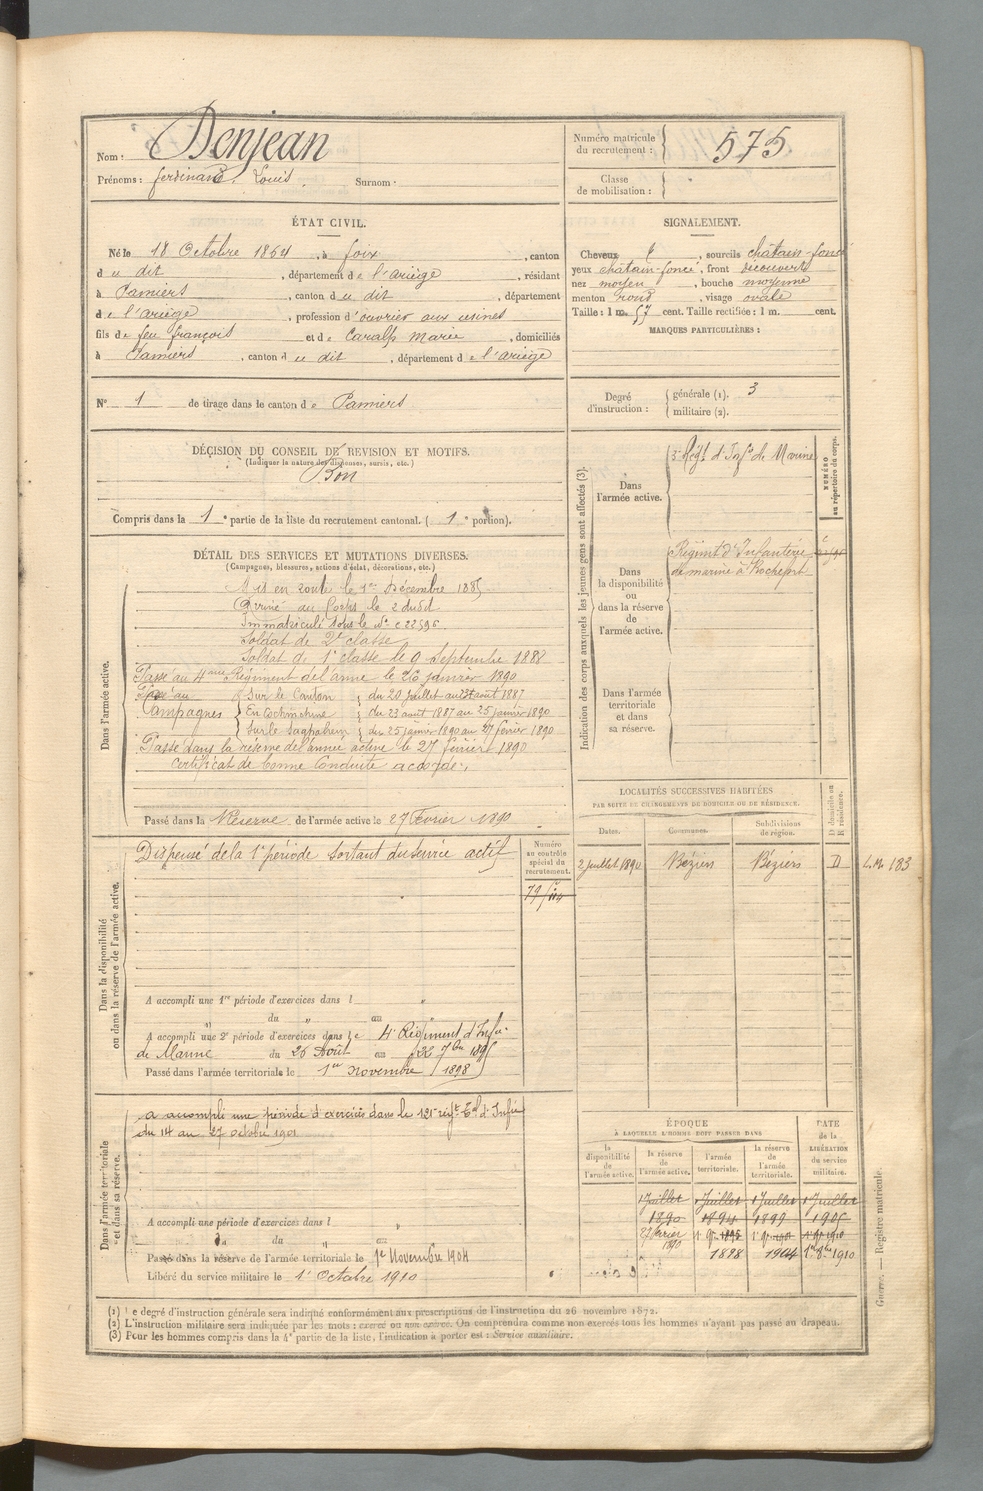 Nom : Denjean
Prénoms : Ferdinand Louis Surnom :
Numéro matricule du recrutement : 575
Classe de mobilisation :
ÉTAT CIVIL.
Né le 18 Octobre 1864, à foix, canton
du dit, département de l'ariège, résidant
à Pamiers, canton du dit, département
de l'ariège, profession d'ouvrier aux usines
fils de feu françois et de Caralp Marie, domiciliés
à Pamiers, canton du dit, département de l'ariège
SIGNALEMENT.
Cheveux, sourcils châtain-foncé
yeux châtain-foncé, front découvert
nez moyen, bouche moyenne
menton rond, visage ovale
Taille : 1 m. 57 cent. Taille rectifiée : 1 m. cent.
MARQUES PARTICULIÈRES :
N° 1 de tirage dans le canton de Pamiers
Degré d'instruction : générale (1). 3
militaire (2).
DÉCISION DU CONSEIL DE REVISION ET MOTIFS.
(Indiquer la nature des dispenses, sursis, etc.)
Bon
Compris dans la 1e partie de la liste du recrutement cantonal. (1e portion).
DÉTAIL DES SERVICES ET MUTATIONS DIVERSES.
(Campagnes, blessures, actions d'éclat, décorations, etc.)
Dans l'armée active.
Mis en route le 1er Décembre 1885
Arrivé au Corps le 2 dudit
Immatriculé sous le N°
Soldat de 2e classe
Soldat de 1e classe le 9 Septembre 1888
Passé au 4ème Régiment de l'arme le 26 janvier 1890
Passé au
Campagnes
Sur le Canton du 20 juillet au août 1887
En Cochinchine du 23 août 1887 au 25 janvier 1890
Sur le du 25 janvier 1890 au 27 février 1890
Passé dans la réserve de l'armée active le 27 février 1890
Certificat de bonne Conduite accordé.
Passé dans la Réserve de l'armée active le 27 Février 1890
Indication des corps auxquels les jeunes gens sont affectés (3).
NUMÉRO au répertoire du corps.
Dans l'armée active.
3e Régt d'Infie de Marine
Dans la disponibilité ou dans la réserve de l'armée active.
Régimt d'Infanterie
de marine à Rochefort
Dans l'armée territoriale et dans sa réserve.
LOCALITÉS SUCCESSIVES HABITÉES
PAR SUITE DE CHANGEMENTS DE DOMICILE OU DE RÉSIDENCE.
D domicile ou R résidence.
Dates. Communes. Subdivisions de région.
2 juillet 1890 Béziers Béziers D
183
Dans la disponibilité ou dans la réserve de l'armée active.
Numéro au contrôle spécial du recrutement.
Dispensé de la 1e période sortant du service actif
A accompli une 1re période d'exercices dans l
du au
A accompli une 2e période d'exercices dans le 4e Régiment d'Infie
de Marine du 26 Août au 1895
Passé dans l'armée territoriale le 1er novembre 1898
Dans l'armée territoriale et dans sa réserve.
a accompli une période d'exercices dans le
du 14 au 27 octobre 1901
A accompli une période d'exercices dans l
du au
Passé dans la réserve de l'armée territoriale le 1er Novembre 1904
Libéré du service militaire le 1er Octobre 1910
ÉPOQUE
À LAQUELLE L'HOMME DOIT PASSER DANS
DATE de la LIBÉRATION du service militaire.
la disponibilité de l'armée active. la réserve de l'armée active. l'armée territoriale. la réserve de l'armée territoriale.
1 Juillet 1 Juillet 1 Juillet 1 Juillet
1890 1894 1899 1905
27 Février
1890
1898 1904 1910
(1) Le degré d'instruction générale sera indiqué conformément aux prescriptions de l'instruction du 26 novembre 1872.
(2) L'instruction militaire sera indiquée par les mots : exercé ou non exercé. On comprendra comme non exercés tous les hommes n'ayant pas passé au drapeau.
(3) Pour les hommes compris dans la 4e partie de la liste, l'indication à porter est : Service auxiliaire.
Guerre. — Registre matricule.